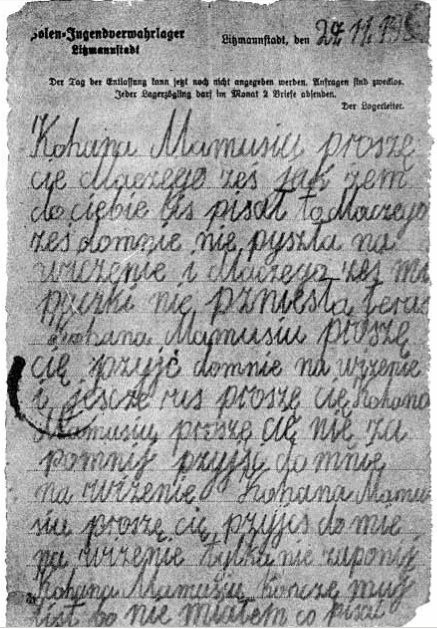 Polen-Jugendverwahrlager
Litzmannstadt
Litzmannstadt, den 27 11. 19
Der Tag der Entlassung kann jetzt noch nicht angegeben werden. Anfragen sind zwecklos.
Jeder Lagerzögling darf im Monat 2 Briefe absenden.
Der Lagerleiter.
Kohana Mamusiu proszę
cię dlaczego żeś jak żem
do ciebie lis pisał to dlaczego
żeś domnie nie pszyszła na
wizenie i dlaczego żeś mi
paczki nie pzniesła teras
Kohana Mamusiu proszę
cię pzyjć domnie na wizenie
i jescze rus proszę cię Kohana
Mamusiu proszę cię nie za
pomnij pzyjść do mnie
na wizenie Kohana Mamu
siu proszę cię pzyjcs do mie
na wizenie tylka nie zaponij
Kohana Mamusiu kończę muj
list bo nie miałem co pisać